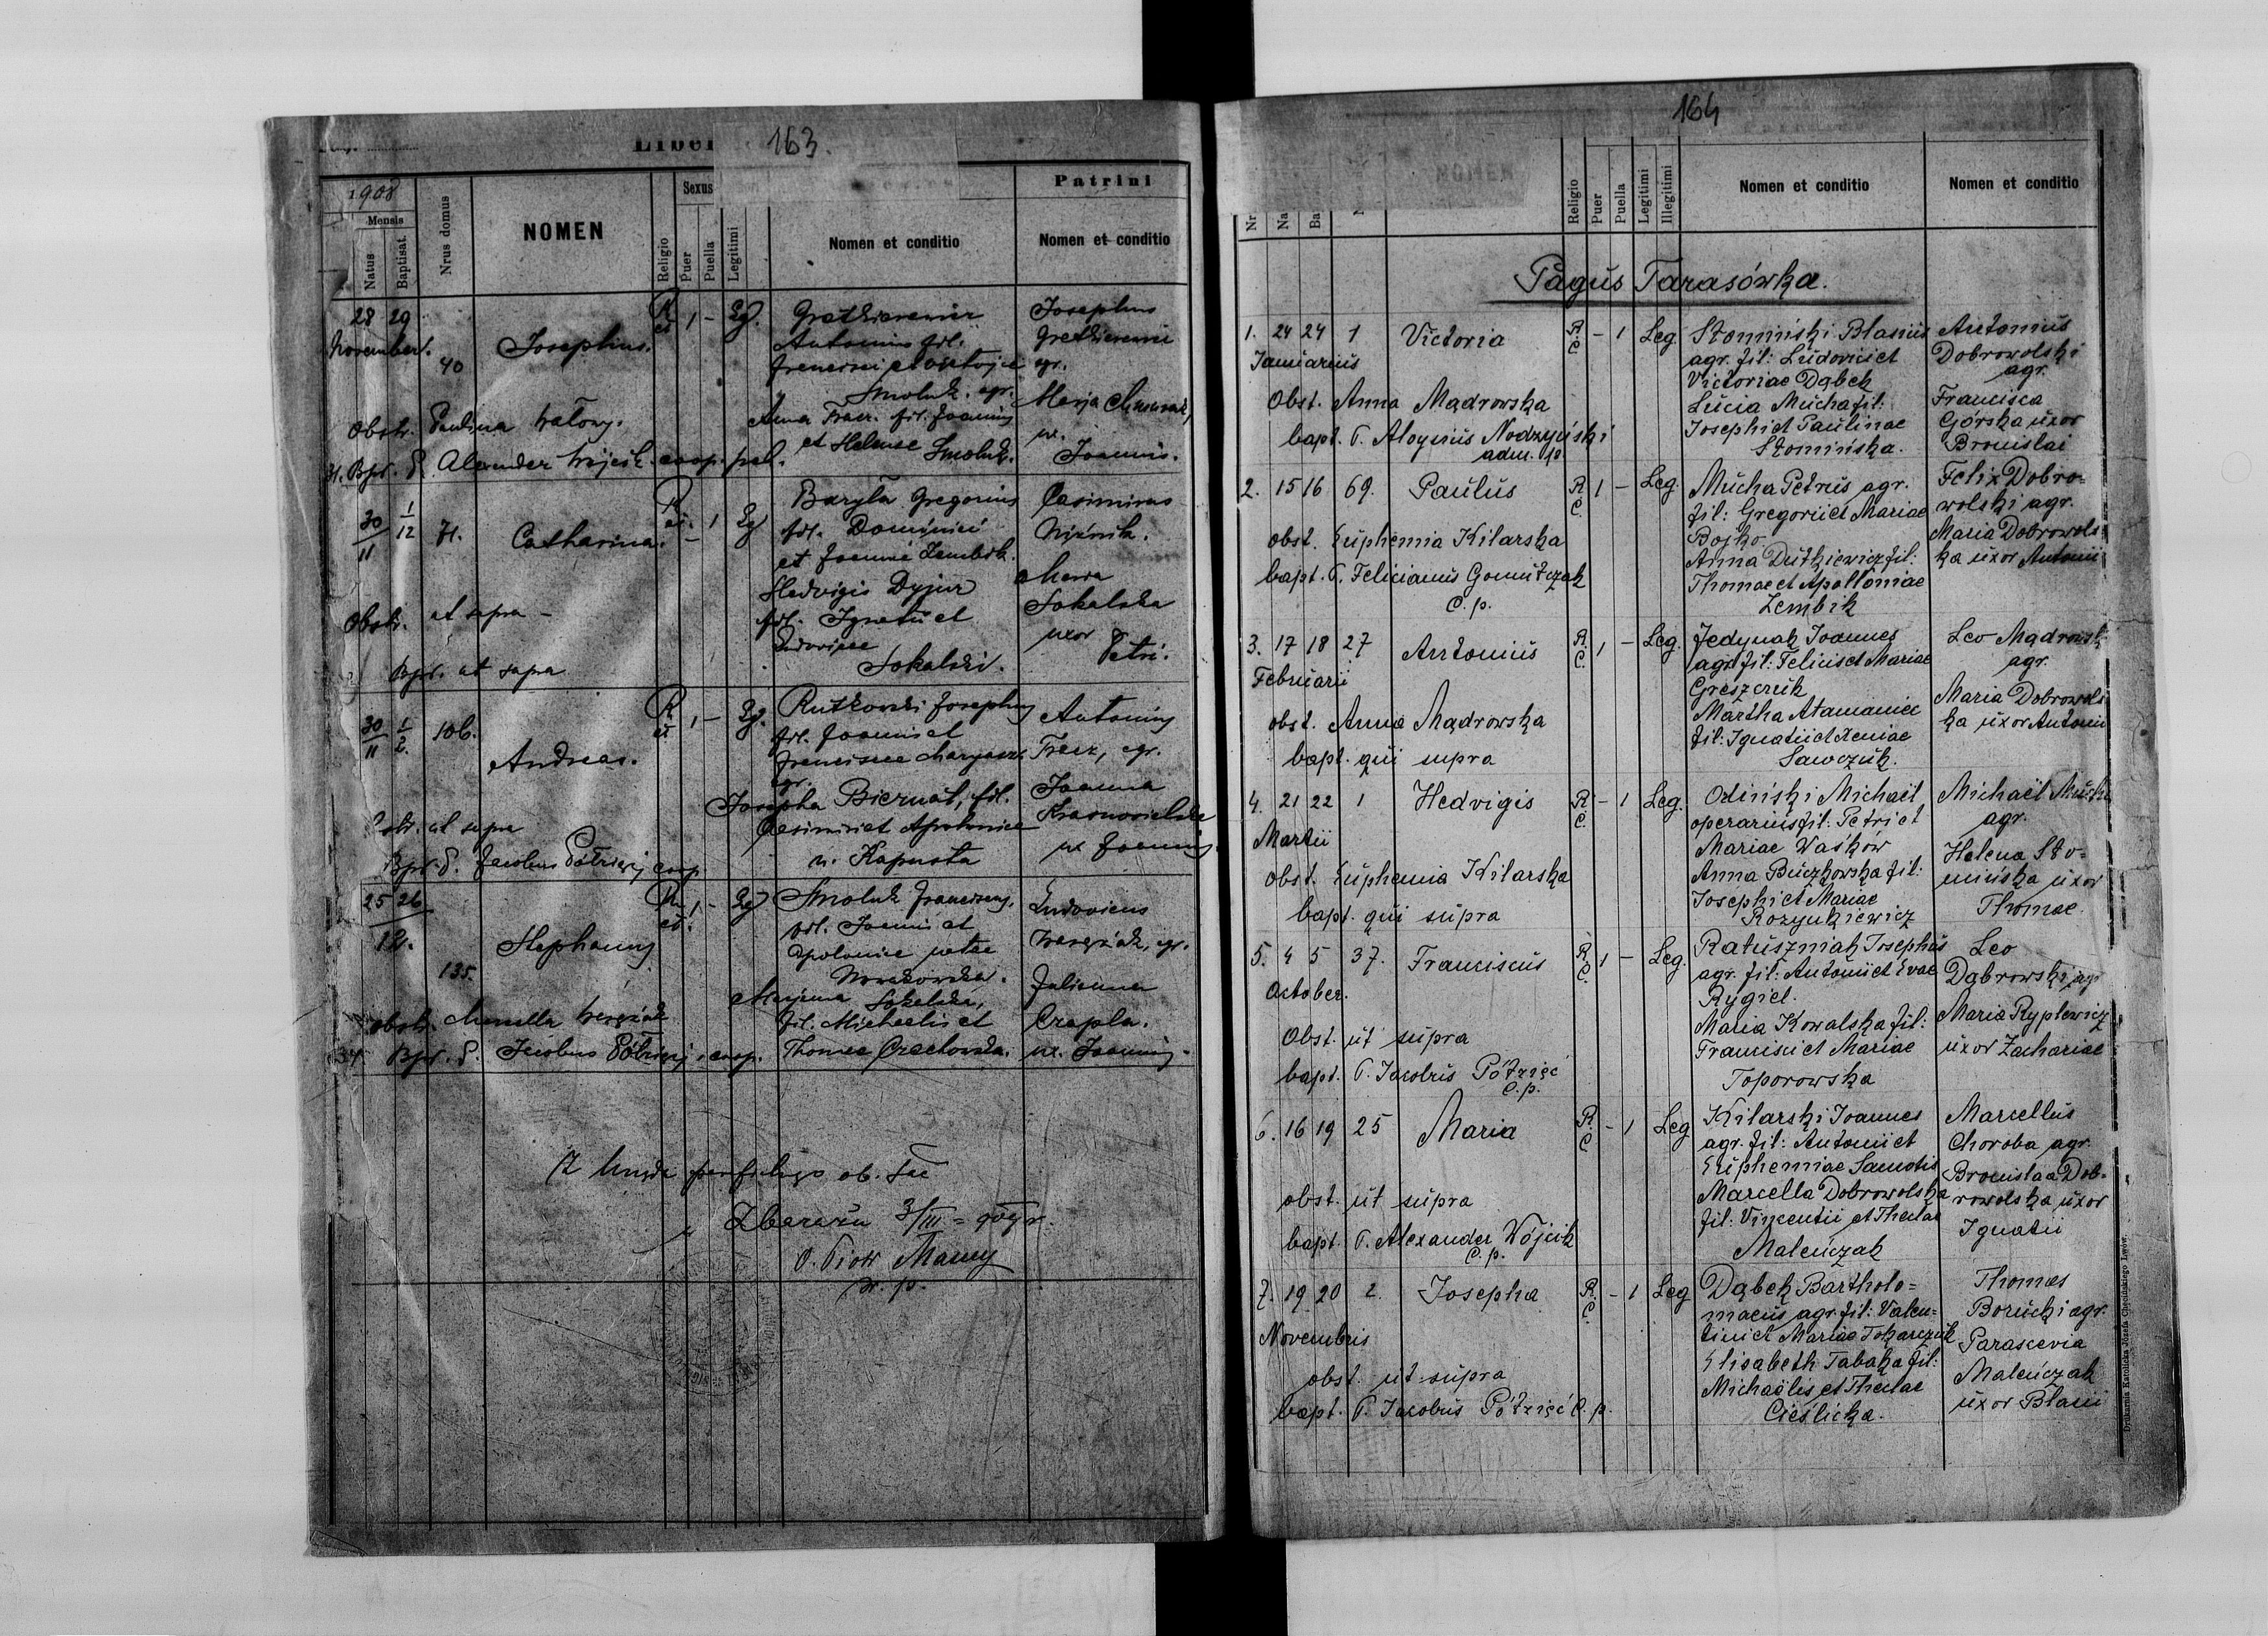 163.
Liber
1908
Mensis
Natus
Baptisat.
Nrus domus
NOMEN
Religio
Sexus
Puer
Puella
Legitimi
Nomen et conditio
Patrini
Nomen et conditio
28 29
November.
40
Josephus.
R 1 - Lg.
Antonius fil.
Smoluk. agr.
Anna Tracz. fil. Joannis
et Helenae Smoluk.
Josephus
agr.
Marja
ux.
Joannis.
Obstr. Paulina
31. Bpt. P. Alexander Wójcik. coop.
30/11 1/12 71. Catharina. - 1 Lg
Baryła Gregorius
fil. Dominici
et Joannae Zembik.
Hedvigis Dyjur
fil. Ignatii et
Ludovicae
Sokalski.
Casimirus
Maria
Sokalska
uxor
Petri.
Obstr. ut supra -
Bpt. ut supra
30/11 1/2. 106.
Andreas.
R 1 - Lg.
Rutkowski Josephus
fil. Joannis et
Franciscae
agr.
Josepha Biernat, fil.
Casimiri et Apoloniae
n. Kapusta
Antonius
Tracz, agr.
Joanna
ux Joannis.
Obstr. ut supra
Bpt. P. Jacobus Półzięć coop
25 26
12.
135.
Stephanus
1 - Lg
Smoluk Franciscus,
fil. Joannis et
Apoloniae natae
Nowakowska.
Sokalska,
fil. Michaelis et
Ludovicus
agr.
Julianna
Czapla.
ux. Joannis.
obstr.
34 Bpt. P. Jacobus Półzięć, coop.
Z urzędu parafialnego ob. łac
w Zbarażu 3/III =
O. Piotr
164
NOMEN
Religio
Puer
Puella
Legitimi
Illegitimi
Nomen et conditio
Nomen et conditio
Pagus Tarasówka.
1. 24 24 1 Victoria R. C. - 1 Leg
Januarius
Słomiński Blasius
agr. fil: Ludovici et
Victoriae Dąbek
Lucia Mucha fil:
Josephi et Paulinae
Słomińska.
Antonius
Dobrowolski
agr.
Francisca
Górska uxor
Bronislai
Obst. Anna Mądrowska
bapt. P. Aloysius Nodzyński
adm. p.
2. 15 16 69. Paulus R. C. 1 - Leg
Mucha Petrus agr.
fil: Gregorii et Mariae
Bojko
Anna Dutkiewicz fil:
Thomae et Apolloniae
Zembik
Felix Dobro=
wolski agr.
Maria Dobrowols
ka uxor Antonii
obst. Euphemia Kilarska
bapt. P. Felicianus Gomułczak
C. p.
3. 17 18 27 Antonius R. C. 1 - Leg.
Februarii
Jedynak Joannes
agr. fil: Felicis et Mariae
Greszczuk
Martha Atamaniec
fil: Ignatii et Xeniae
Sawczuk.
Leo Mądrowski
agr.
Maria Dobrowols
ka uxor Antonii
obst. Anna Mądrowska
bapt. qui supra
4. 21 22 1 Hedvigis R. C. - 1 Leg.
Martii
Osiński Michael
operarius fil: Petri et
Mariae Waśków
Anna Buczkowska fil:
Josephi et Mariae
Rozynkiewicz
Michael Mucha
agr.
Helena Sło=
mińska uxor
Thomae.
obst. Euphemia Kilarska
bapt. qui supra
5. 4 5 37. Franciscus R. C. 1 - Leg.
October.
Ratuszniak Josephus
agr. fil: Antonii et Evae
Rygiel.
Maria Kowalska fil:
Francisci et Mariae
Toporowska
Leo
Dąbrowski agr
Maria Ryplewicz
uxor Zachariae
Obst. ut supra
bapt. P. Jacobus Półzięć
C. p.
6. 16 19 25 Maria R. C - 1 Leg
Kilarski Joannes
agr. fil: Antonii et
Euphemiae Samotis
Marcella Dobrowolska
fil: Vincentii et Theclae
Maleńczak
Marcellus
Choroba agr.
Bronislaa Dob=
rowolska uxor
Ignatii
obst. ut supra
bapt. P. Alexander Wójcik
C. p.
7. 19 20 2. Josepha R. C - 1 Leg
Novembris
Dąbek Bartholo=
maeus agr. fil: Valen=
tini et Mariae Tokarczuk
Elisabeth Tabaka fil:
Michaëlis et Theclae
Cieślicka.
Thomas
Borucki agr.
Parascevia
Maleńczak
uxor Blasii
obst. ut supra
bapt. P. Jacobus Półzięć C. p.
Drukarnia Katolicka Józefa Chęcińskiego Lwów.